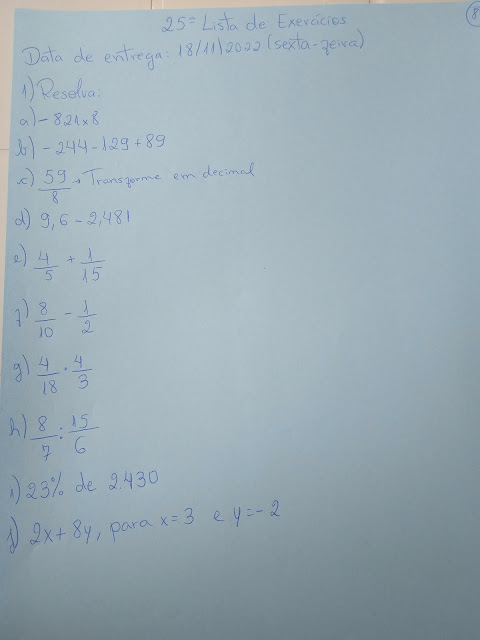 25ª Lista de Exercícios
8
Data de entrega: 18/11/2022 (sexta-feira)
1) Resolva:
a) - 821 x 8
b) - 244 - 129 + 89
c) 59/8 → Transforme em decimal
d) 9,6 - 2,481
e) 4/5 + 1/15
f) 8/10 - 1/2
g) 4/18 . 4/3
h) 8/7 : 15/6
i) 23% de 2.430
j) 2x + 8y, para x = 3 e y = - 2